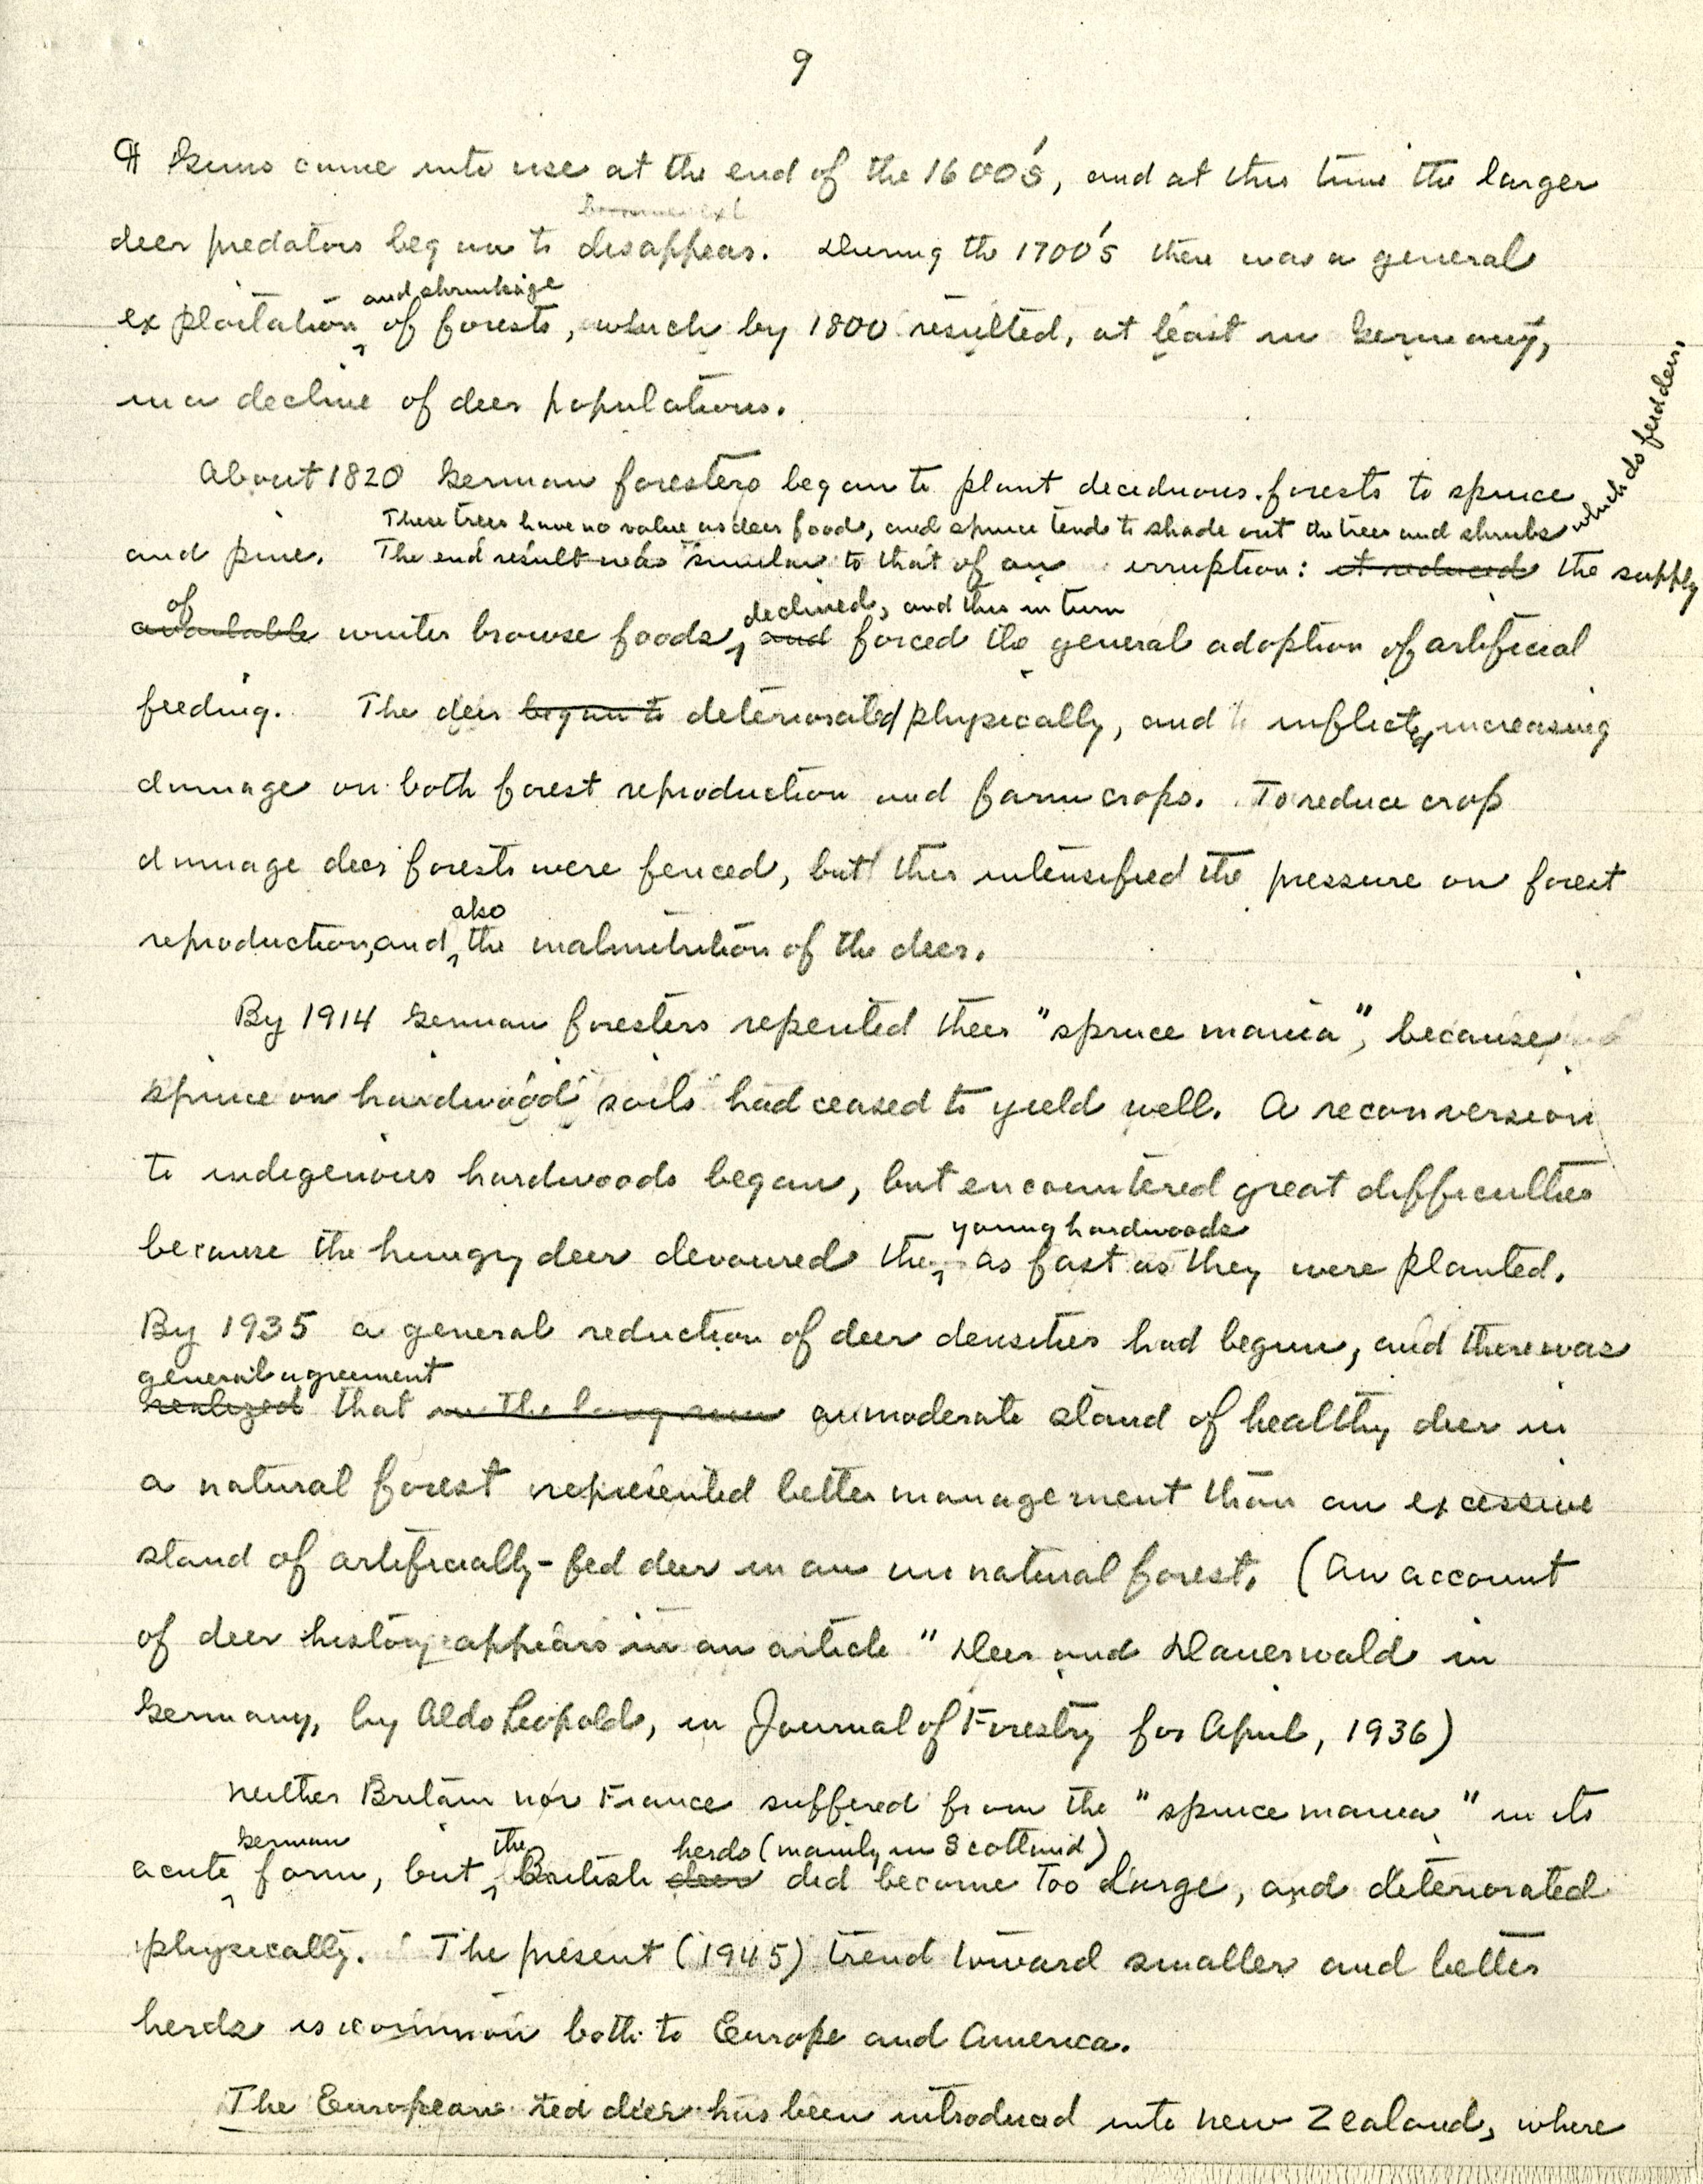 9
¶ Guns came into use at the end of the 1600's, and at this time the larger
become ext
deer predators began to disappear. During the 1700's there was a general
and shrinkage
exploitation of forests, which by 1800 resulted, at least in Germany,
in a decline of deer populations.
About 1820 German foresters began to plant deciduous forests to spruce
These trees have no value as deer foods, and spruce tends to shade out the trees and shrubs which do feed deer.
and pine. The end result was similar to that of an irruption: it reduced the supply
of declined, and this in turn
available winter browse foods, and forced the general adoption of artificial
feeding. The deer began to deteriorated physically, and inflicted increasing
damage on both forest reproduction and farm crops. To reduce crop
damage deer forests were fenced, but this intensified the pressure on forest
also
reproduction, and the malnutrition of the deer.
By 1914 German foresters repented their "spruce mania", because
spruce on hardwood soils had ceased to yield well. A reconversion
to indigenous hardwoods began, but encountered great difficulties
young hardwoods
because the hungry deer devoured the as fast as they were planted.
By 1935 a general reduction of deer densities had begun, and there was
general agreement
realized that in the long run a moderate stand of healthy deer in
a natural forest represented better management than an excessive
stand of artificially-fed deer in an unnatural forest. (An account
of deer history appears in an article "Deer and Dauerwald in
Germany, by Aldo Leopold, in Journal of Forestry for April, 1936)
Neither Britain nor France suffered from the "spruce mania" in its
German the herds (mainly in Scotland)
acute form, but British deer did become too large, and deteriorated
physically. The present (1945) trend toward smaller and better
herds is common both to Europe and America.
The European red deer has been introduced into New Zealand, where